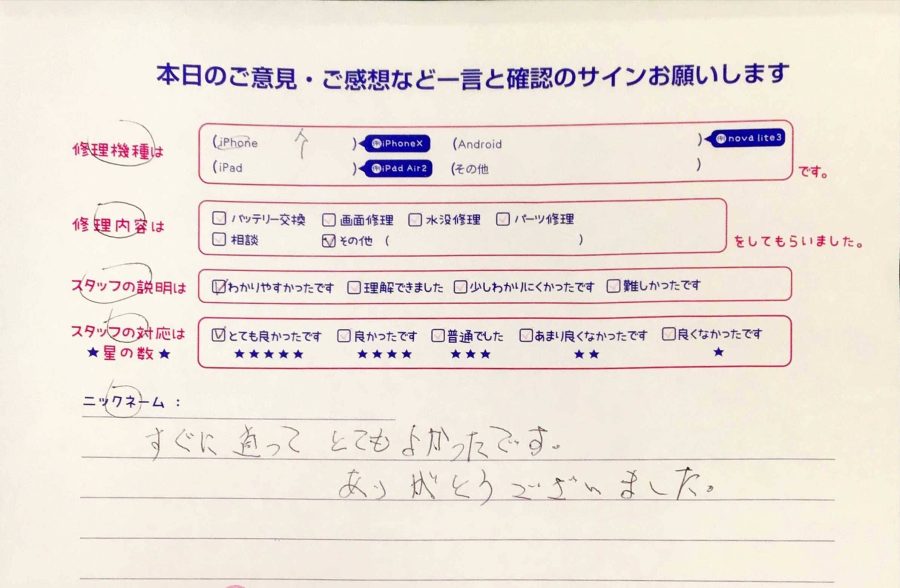 本日のご意見・ご感想など一言と確認のサインお願いします
修理機種は (iPhone ) 例iPhoneX (Android ) 例nova lite3
(iPad ) 例iPad Air2 (その他 ) です。
修理内容は □バッテリー交換 □画面修理 □水没修理 □パーツ修理
□相談 ☑その他 ( ) をしてもらいました。
スタッフの説明は ☑わかりやすかったです □理解できました □少しわかりにくかったです □難しかったです
スタッフの対応は ☑とても良かったです □良かったです □普通でした □あまり良くなかったです □良くなかったです
★星の数★ ★★★★★ ★★★★ ★★★ ★★ ★
ニックネーム:
すぐに直って とてもよかったです。
ありがとうございました。